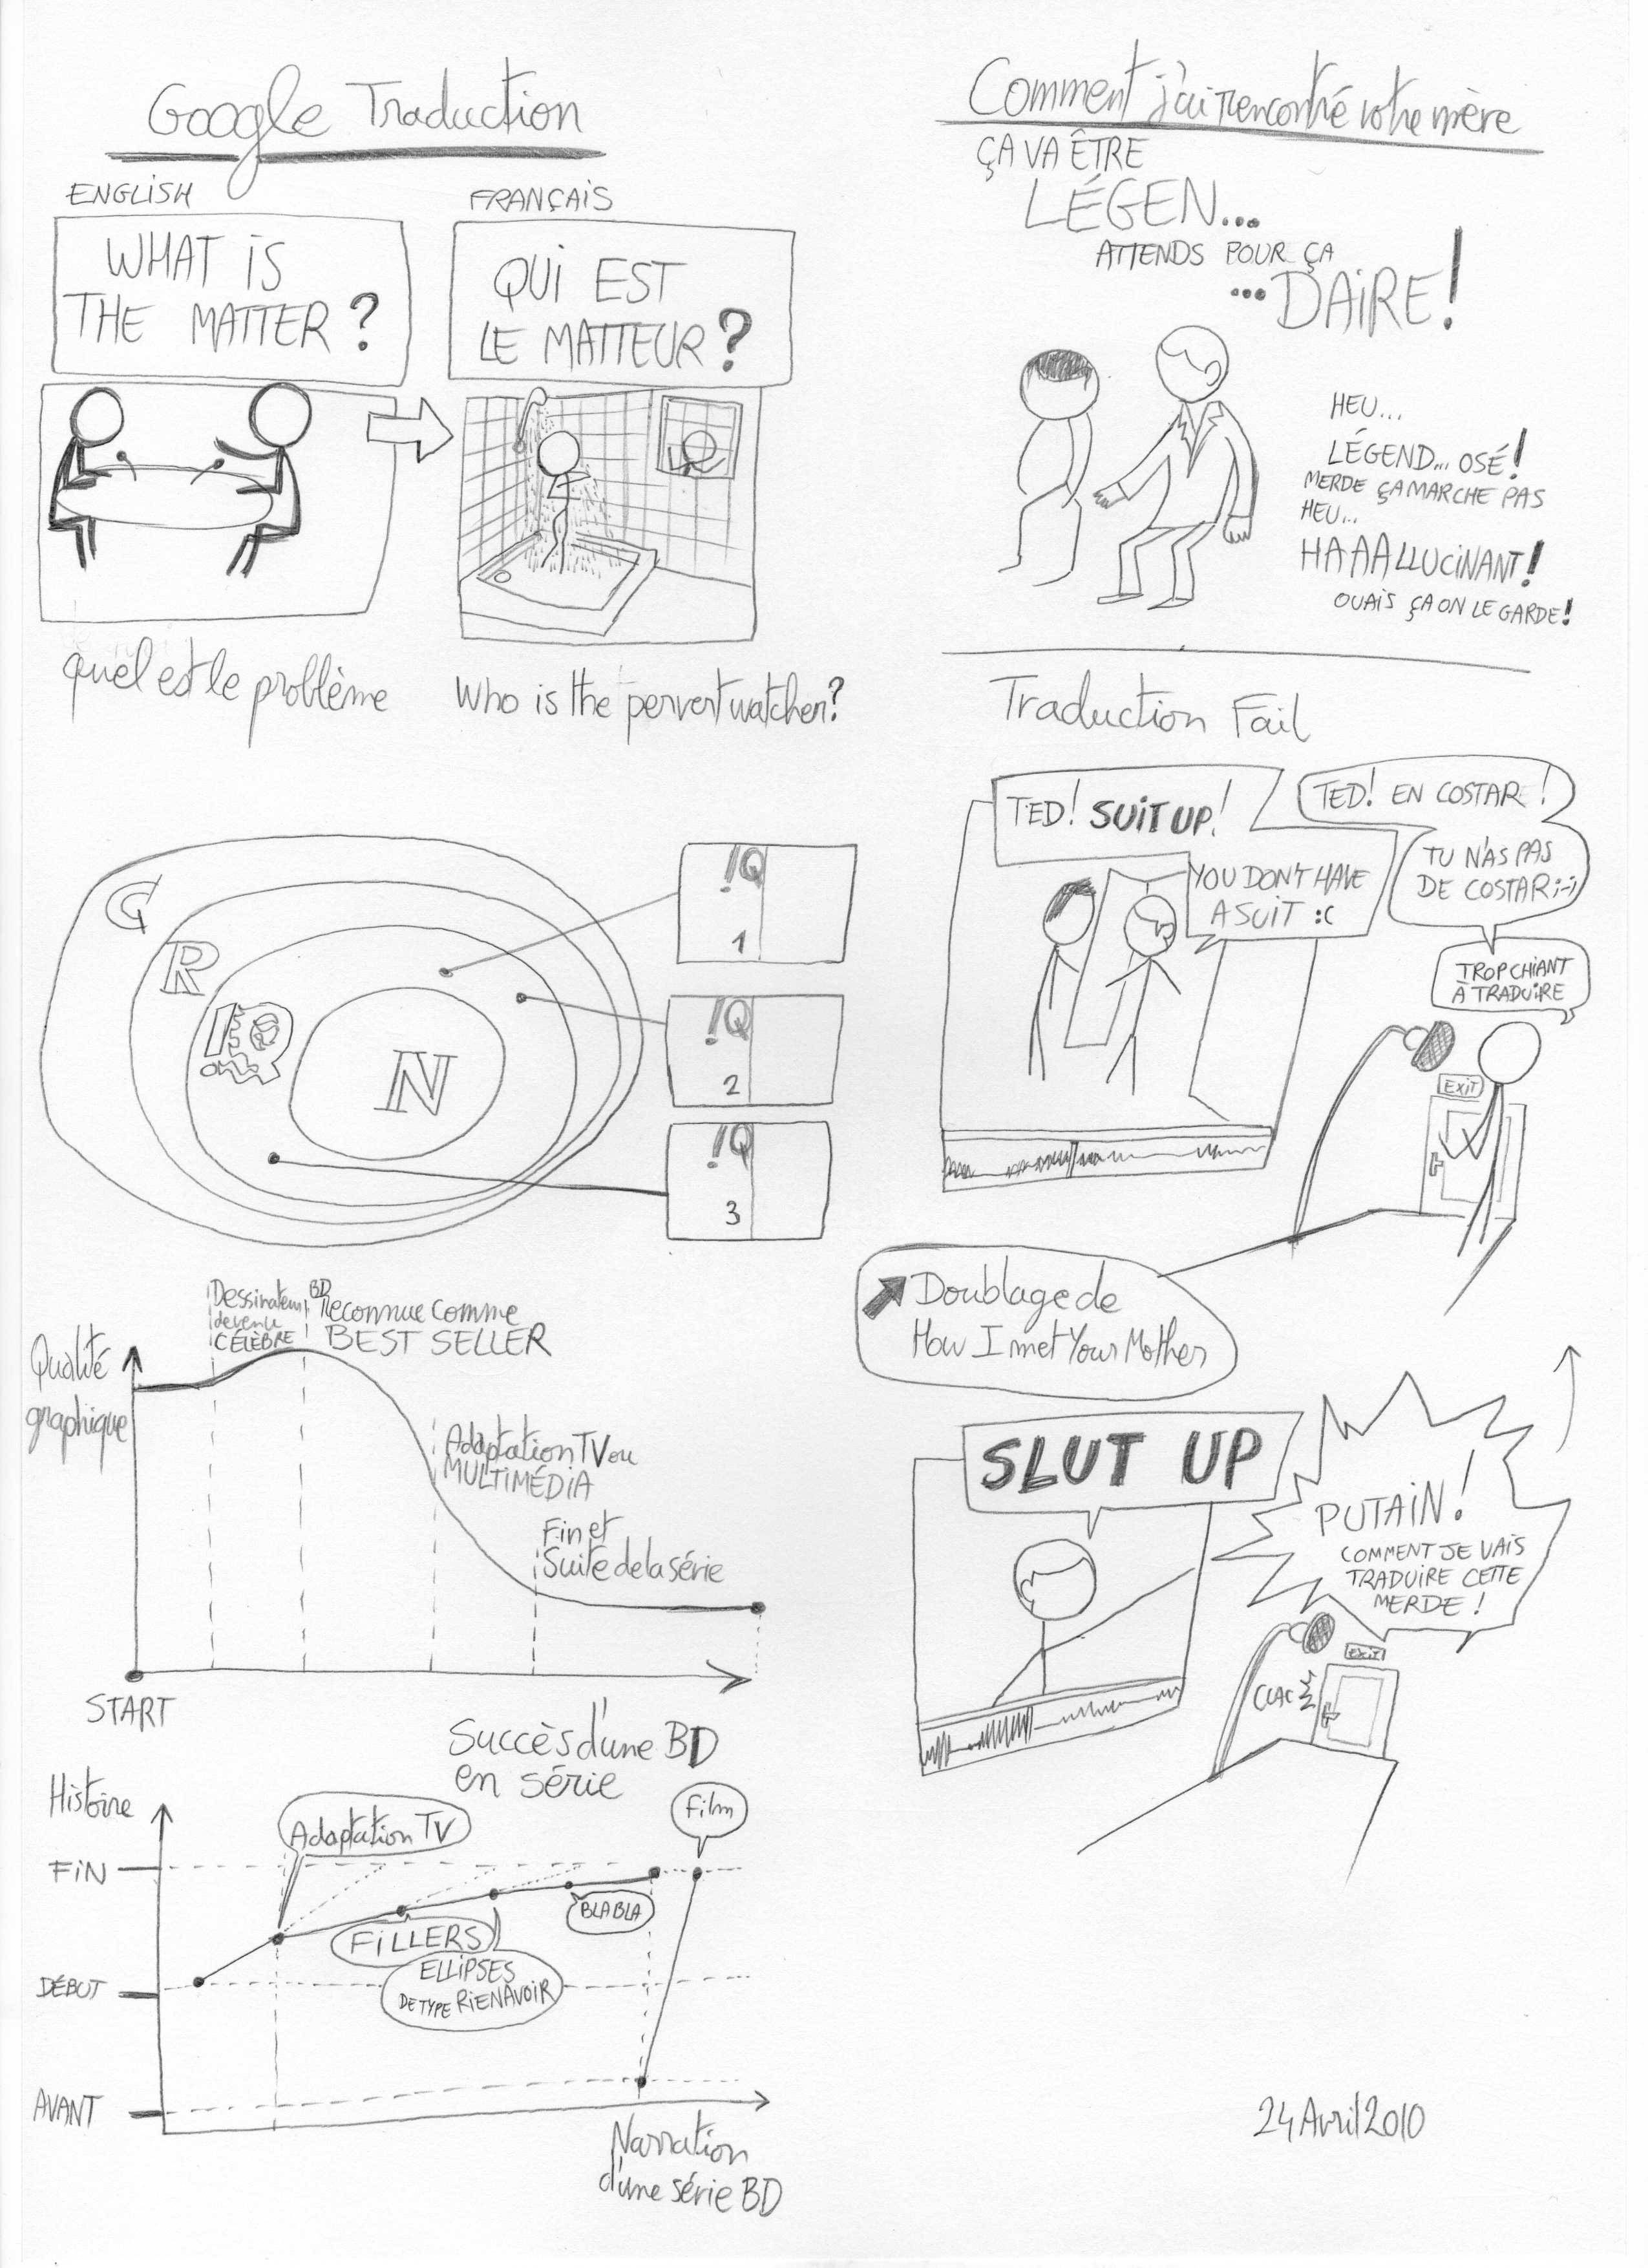 Google Traduction
ENGLISH
WHAT IS
THE MATTER ?
FRANÇAIS
QUI EST
LE MATTEUR ?
quel est le problème
Who is the pervert watcher?
C
R
!Q
N
!Q
1
!Q
2
!Q
3
Qualité
graphique
Dessinateur
devenu
CÉLÈBRE
BD
Reconnue comme
BEST SELLER
Adaptation TV ou
MULTIMÉDIA
Fin et
Suite de la série
START
Succès d'une BD
en série
Histoire
FIN
DÉBUT
AVANT
Adaptation TV
FILLERS
ELLIPSES
DE TYPE RIENAVOIR
BLABLA
Film
Narration
d'une série BD
Comment j'ai rencontré votre mère
ÇA VA ÊTRE
LÉGEN...
ATTENDS POUR ÇA
...DAIRE!
HEU...
LÉGEND... OSÉ!
MERDE ÇA MARCHE PAS
HEU...
HAAALLUCINANT!
OUAIS ÇA ON LE GARDE!
Traduction Fail
TED! SUIT UP!
YOU DON'T HAVE
A SUIT :C
TED! EN COSTAR!
TU N'AS PAS
DE COSTAR ;-)
TROP CHIANT
À TRADUIRE
EXIT
Doublage de
How I met Your Mother
SLUT UP
PUTAIN!
COMMENT JE VAIS
TRADUIRE CETTE
MERDE !
EXIT
CLAC
24 Avril 2010